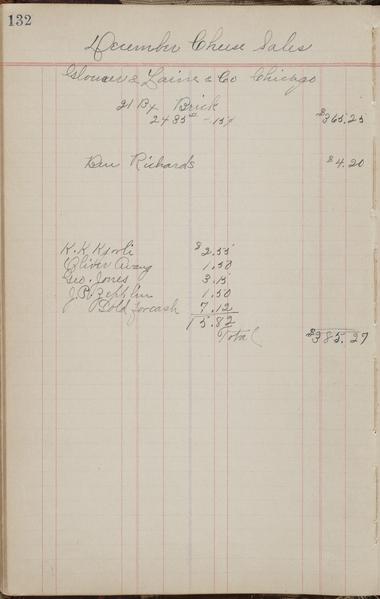 132
December Cheese Sales
& Laine & Co Chicago
21 Bx Brick
2435 - 15¢ $365.25
Dan Richards $4.20
K. K. $2.55
Oliver 1.50
Geo. Jones 3.15
J. P. Zepplin 1.50
Sold for cash 7.12
15.82
Total $385.27